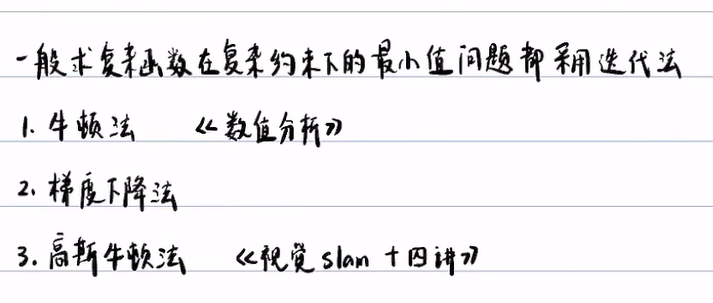 一般求复杂函数在复杂约束下的最小值问题都采用迭代法
1. 牛顿法 《数值分析》
2. 梯度下降法
3. 高斯牛顿法 《视觉slam十四讲》